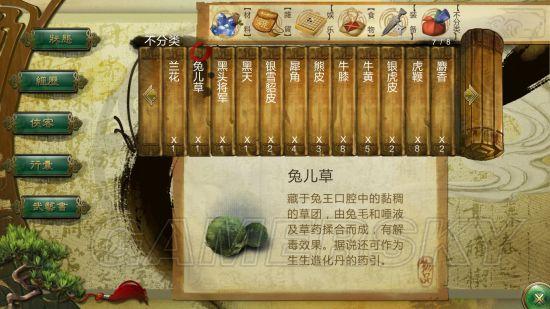 材料
娱乐
食物
装备
不分类
不分类
7/8
狀態
經歷
俠客
行囊
武藝書
兰花 x1
兔儿草 x1
黑头将军 x1
黑天 x1
银雪貂皮 x2
犀角 x4
熊皮 x3
牛膝 x8
牛黄 x5
银虎皮 x2
虎鞭 x8
麝香 x2
兔儿草
藏于兔王口腔中的黏稠
的草团，由兔毛和唾液
及草药揉合而成，有解
毒效果。据说还可作为
生生造化丹的药引。
物品
GAMERSKY